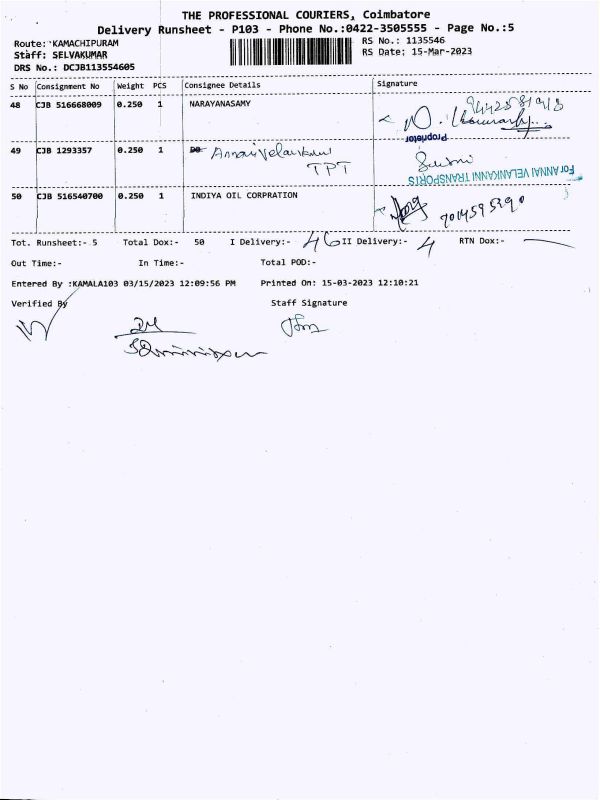 THE PROFESSIONAL COURIERS, Coimbatore
Delivery Runsheet - P103 - Phone No.:0422-3505555 - Page No.:5
Route: KAMACHIPURAM
RS No.: 1135546
Staff: SELVAKUMAR
RS Date: 15-Mar-2023
DRS No.: DCJB113554605
S No Consignment No Weight PCS Consignee Details Signature
48 CJB 516668009 0.250 1 NARAYANASAMY
Proprietor
49 CJB 1293357 0.250 1 Annai Velankanni
TPT
For ANNAI VELANKANNI TRANSPORTS
50 CJB 516540700 0.250 1 INDIYA OIL CORPRATION
7014595290
Tot. Runsheet:- 5 Total Dox:- 50 I Delivery:- 46 II Delivery:- 4 RTN Dox:-
Out Time:- In Time:- Total POD:-
Entered By :KAMALA103 03/15/2023 12:09:56 PM Printed On: 15-03-2023 12:10:21
Verified By Staff Signature